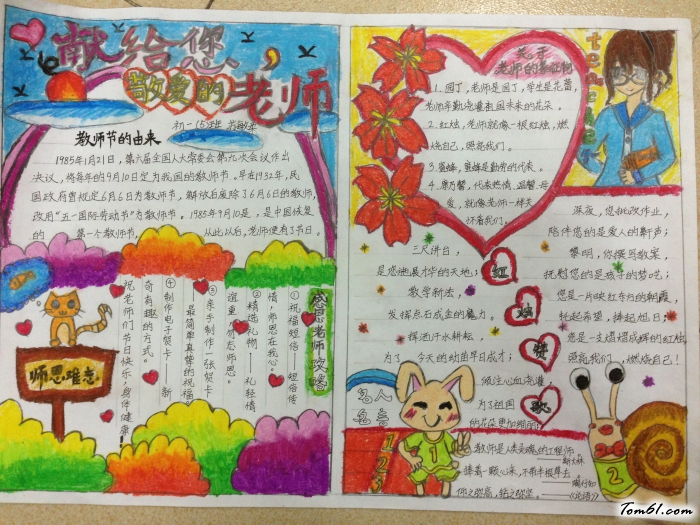 献给您，
敬爱的老师
初一(5)班
教师节的由来
1985年1月21日，第六届全国人大常委会第九次会议作出
决议，将每年的9月10日定为我国的教师节。早在1932年，民
国政府曾规定6月6日为教师节，解放后废除了6月6日的教师节，
改用“五一国际劳动节”为教师节。1985年9月10日，是中国恢复
的 第一个教师节， 从此以后，老师便有了节日。
感恩老师
①祝福短信
情，师恩在我心。
②精选礼物——礼轻情
谊重，勿忘师恩。
③亲手制作一张贺卡
——最简单真挚的祝福
④制作电子贺卡——新
奇有趣的方式。
祝老师们节日快乐，身体健康！
师恩难忘
关于
老师的象征物
1.园丁，老师是园丁，学生是花蕾，
老师辛勤浇灌祖国未来的花朵。
2.红烛，老师就像一根红烛，燃
烧自己，照亮我们。
3.蜜蜂，蜜蜂是勤劳的代表。
4.康乃馨，代表热情、温馨、母
爱，就像老师一样关
怀着我们。
teacher
三尺讲台，
是您施展才华的天地；
教学新法，
发挥点石成金的魔力。
挥洒汗水耕耘，
为了 今天的幼苗早日成才；
倾注心血浇灌，
为了祖国
的花朵更加绚丽；
红
烛
赞
歌
深夜，您批改作业，
陪伴您的是爱人的鼾声；
黎明，你撰写教案，
抚慰您的是孩子的梦呓；
您是一片映红东方的朝霞，
托起希望，捧起旭日；
您是一支熠熠成辉的红烛，
照亮我们，燃烧自己！
名人
名言
教师是人类灵魂的工程师。
——斯大林
捧着一颗心来，不带半根草去
——陶行知
仰之弥高，钻之弥坚。
——《论语》
1
2
Tom61.com